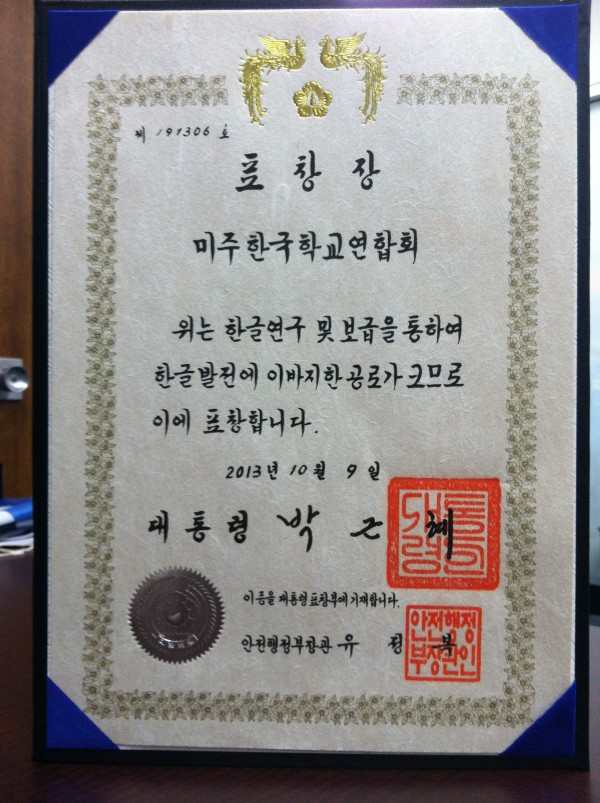 제 191306 호
표창장
미주한국학교연합회
위는 한글연구 및 보급을 통하여
한글발전에 이바지한 공로가 크므로
이에 표창합니다.
2013년 10월 9일
대통령 박근혜
대통령의인
이 증을 대통령표창부에 기재합니다.
안전행정부장관 유정복
안전행정
부장관인